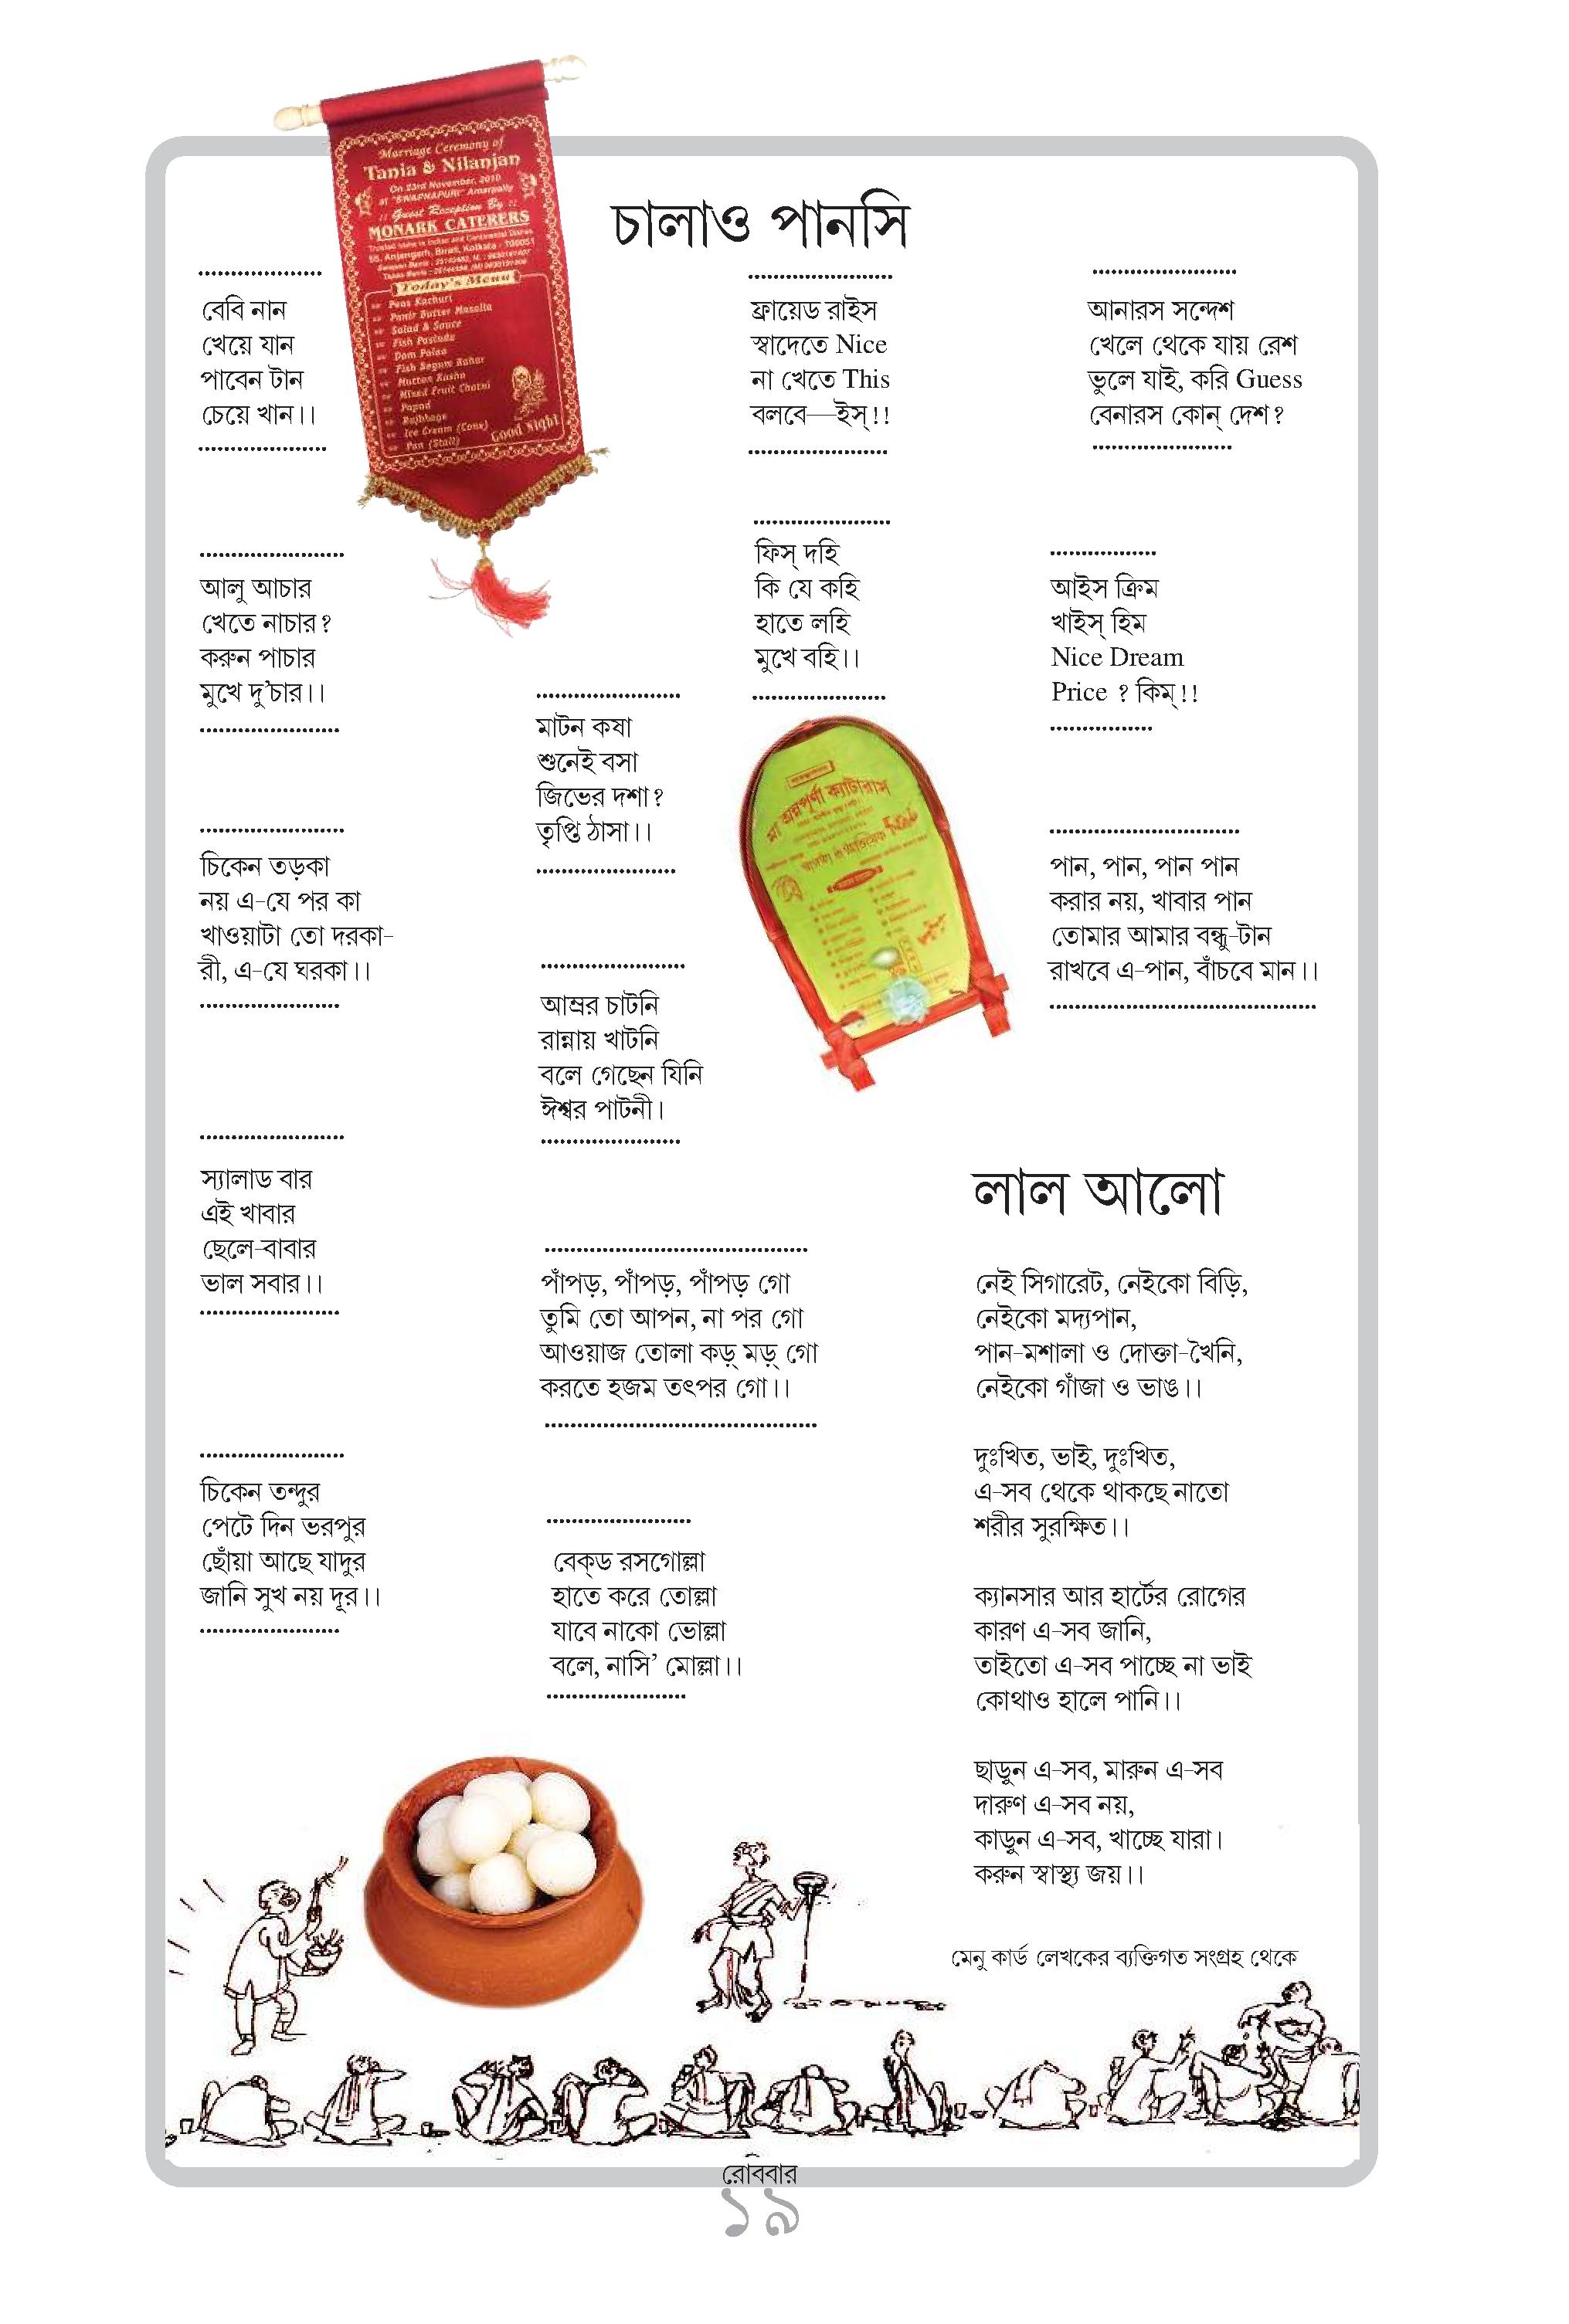 Marriage Ceremony of
Tania & Nilanjan
On 23rd November, 2010
at "SWAPNAPURI" Amarpally
:: Guest Reception By ::
MONARK CATERERS
Today's Menu
Peas Kachuri
Panir Butter Masalla
Salad & Souce
Fish Pasinda
Dom Polao
Fish Begum Bahar
Mutton Kasha
Mixed Fruit Chatni
Papad
Rajbhoge
Ice Cream (Conx)
Pan (Stall)
Good Night
চালাও পানসি
বেবি নান
খেয়ে যান
পাবেন টান
চেয়ে খান।।
আলু আচার
খেতে নাচার?
করুন পাচার
মুখে দু’চার।।
চিকেন তড়কা
নয় এ-যে পর কা
খাওয়াটা তো দরকা-
রী, এ-যে ঘরকা।।
স্যালাড বার
এই খাবার
ছেলে-বাবার
ভাল সবার।।
চিকেন তন্দুর
পেটে দিন ভরপুর
ছোঁয়া আছে যাদুর
জানি সুখ নয় দূর।।
মাটন কষা
শুনেই বসা
জিভের দশা?
তৃপ্তি ঠাসা।।
আম্রর চাটনি
রান্নায় খাটনি
বলে গেছেন যিনি
ঈশ্বর পাটনী।
পাঁপড়, পাঁপড়, পাঁপড় গো
তুমি তো আপন, না পর গো
আওয়াজ তোলা কড়্ মড়্ গো
করতে হজম তৎপর গো।।
বেক্‌ড রসগোল্লা
হাতে করে তোল্লা
যাবে নাকো ভোল্লা
বলে, নাসি’ মোল্লা।।
ফ্রায়েড রাইস
স্বাদেতে Nice
না খেতে This
বলবে—ইস্!!
ফিস্ দহি
কি যে কহি
হাতে লহি
মুখে বহি।।
মা অন্নপূর্ণা ক্যাটারাস
আনারস সন্দেশ
খেলে থেকে যায় রেশ
ভুলে যাই, করি Guess
বেনারস কোন্ দেশ?
আইস ক্রিম
খাইস্ হিম
Nice Dream
Price ? কিম্!!
পান, পান, পান পান
করার নয়, খাবার পান
তোমার আমার বন্ধু-টান
রাখবে এ-পান, বাঁচবে মান।।
লাল আলো
নেই সিগারেট, নেইকো বিড়ি,
নেইকো মদ্যপান,
পান-মশালা ও দোক্তা-খৈনি,
নেইকো গাঁজা ও ভাঙ।।
দুঃখিত, ভাই, দুঃখিত,
এ-সব থেকে থাকছে নাতো
শরীর সুরক্ষিত।।
ক্যানসার আর হার্টের রোগের
কারণ এ-সব জানি,
তাইতো এ-সব পাচ্ছে না ভাই
কোথাও হালে পানি।।
ছাড়ুন এ-সব, মারুন এ-সব
দারুণ এ-সব নয়,
কাড়ুন এ-সব, খাচ্ছে যারা।
করুন স্বাস্থ্য জয়।।
মেনু কার্ড লেখকের ব্যক্তিগত সংগ্রহ থেকে
রোববার
১৯